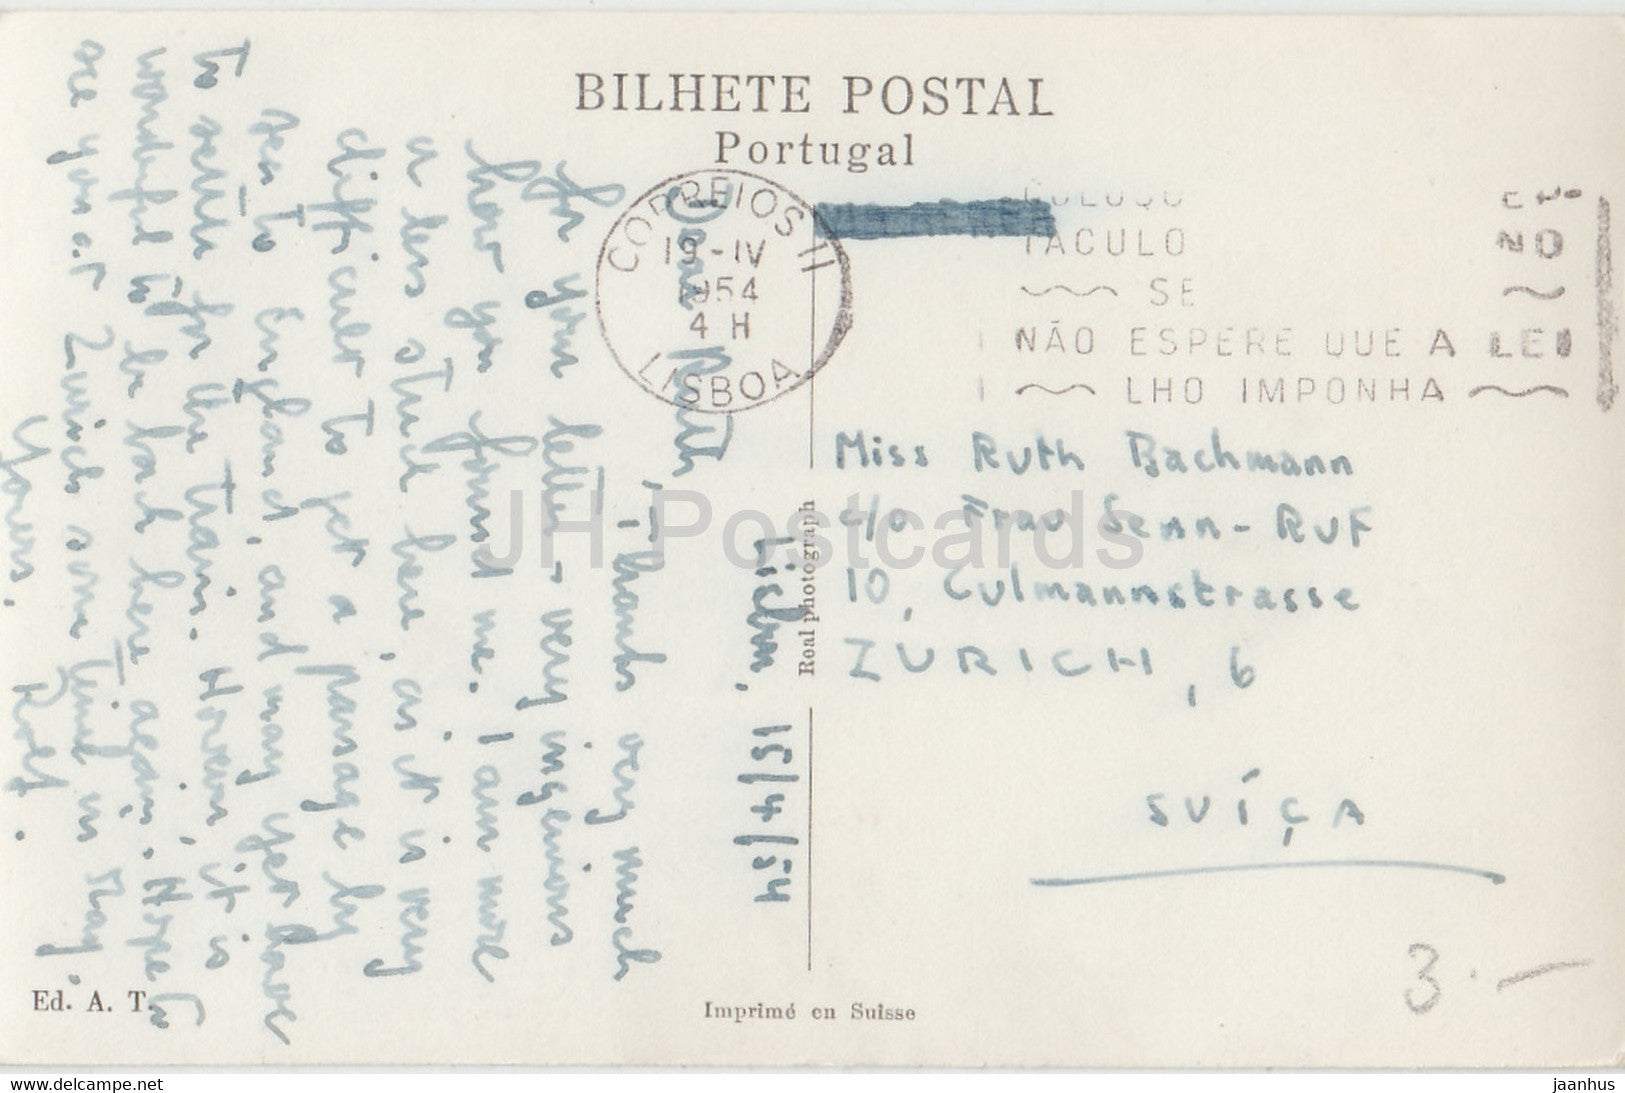 BILHETE POSTAL
Portugal
CORREIOS II
19-IV
1954
4 H
LISBOA
TACULO
NO
SE
NÃO ESPERE QUE A LEI
LHO IMPONHA
Miss Ruth Bachmann
c/o Frau Senn-Ruf
10, Culmannstrasse
ZURICH, 6
SUÍÇA
3.-
Lisbon, 15/4/54
Dear Ruth,
Thanks very much
for your letter - very ingenious
how you found me. I am more
a less stuck here, as it is very
difficult to get a passage by
sea to England, and may yet have
to settle for the train. However, it is
wonderful to be back here again. Hope to
see you at Zurich some time in May.
Yours,
Rolf.
Real photograph
Ed. A. T.
Imprimé en Suisse
JH Postcards
delcampe.net
jaanhus